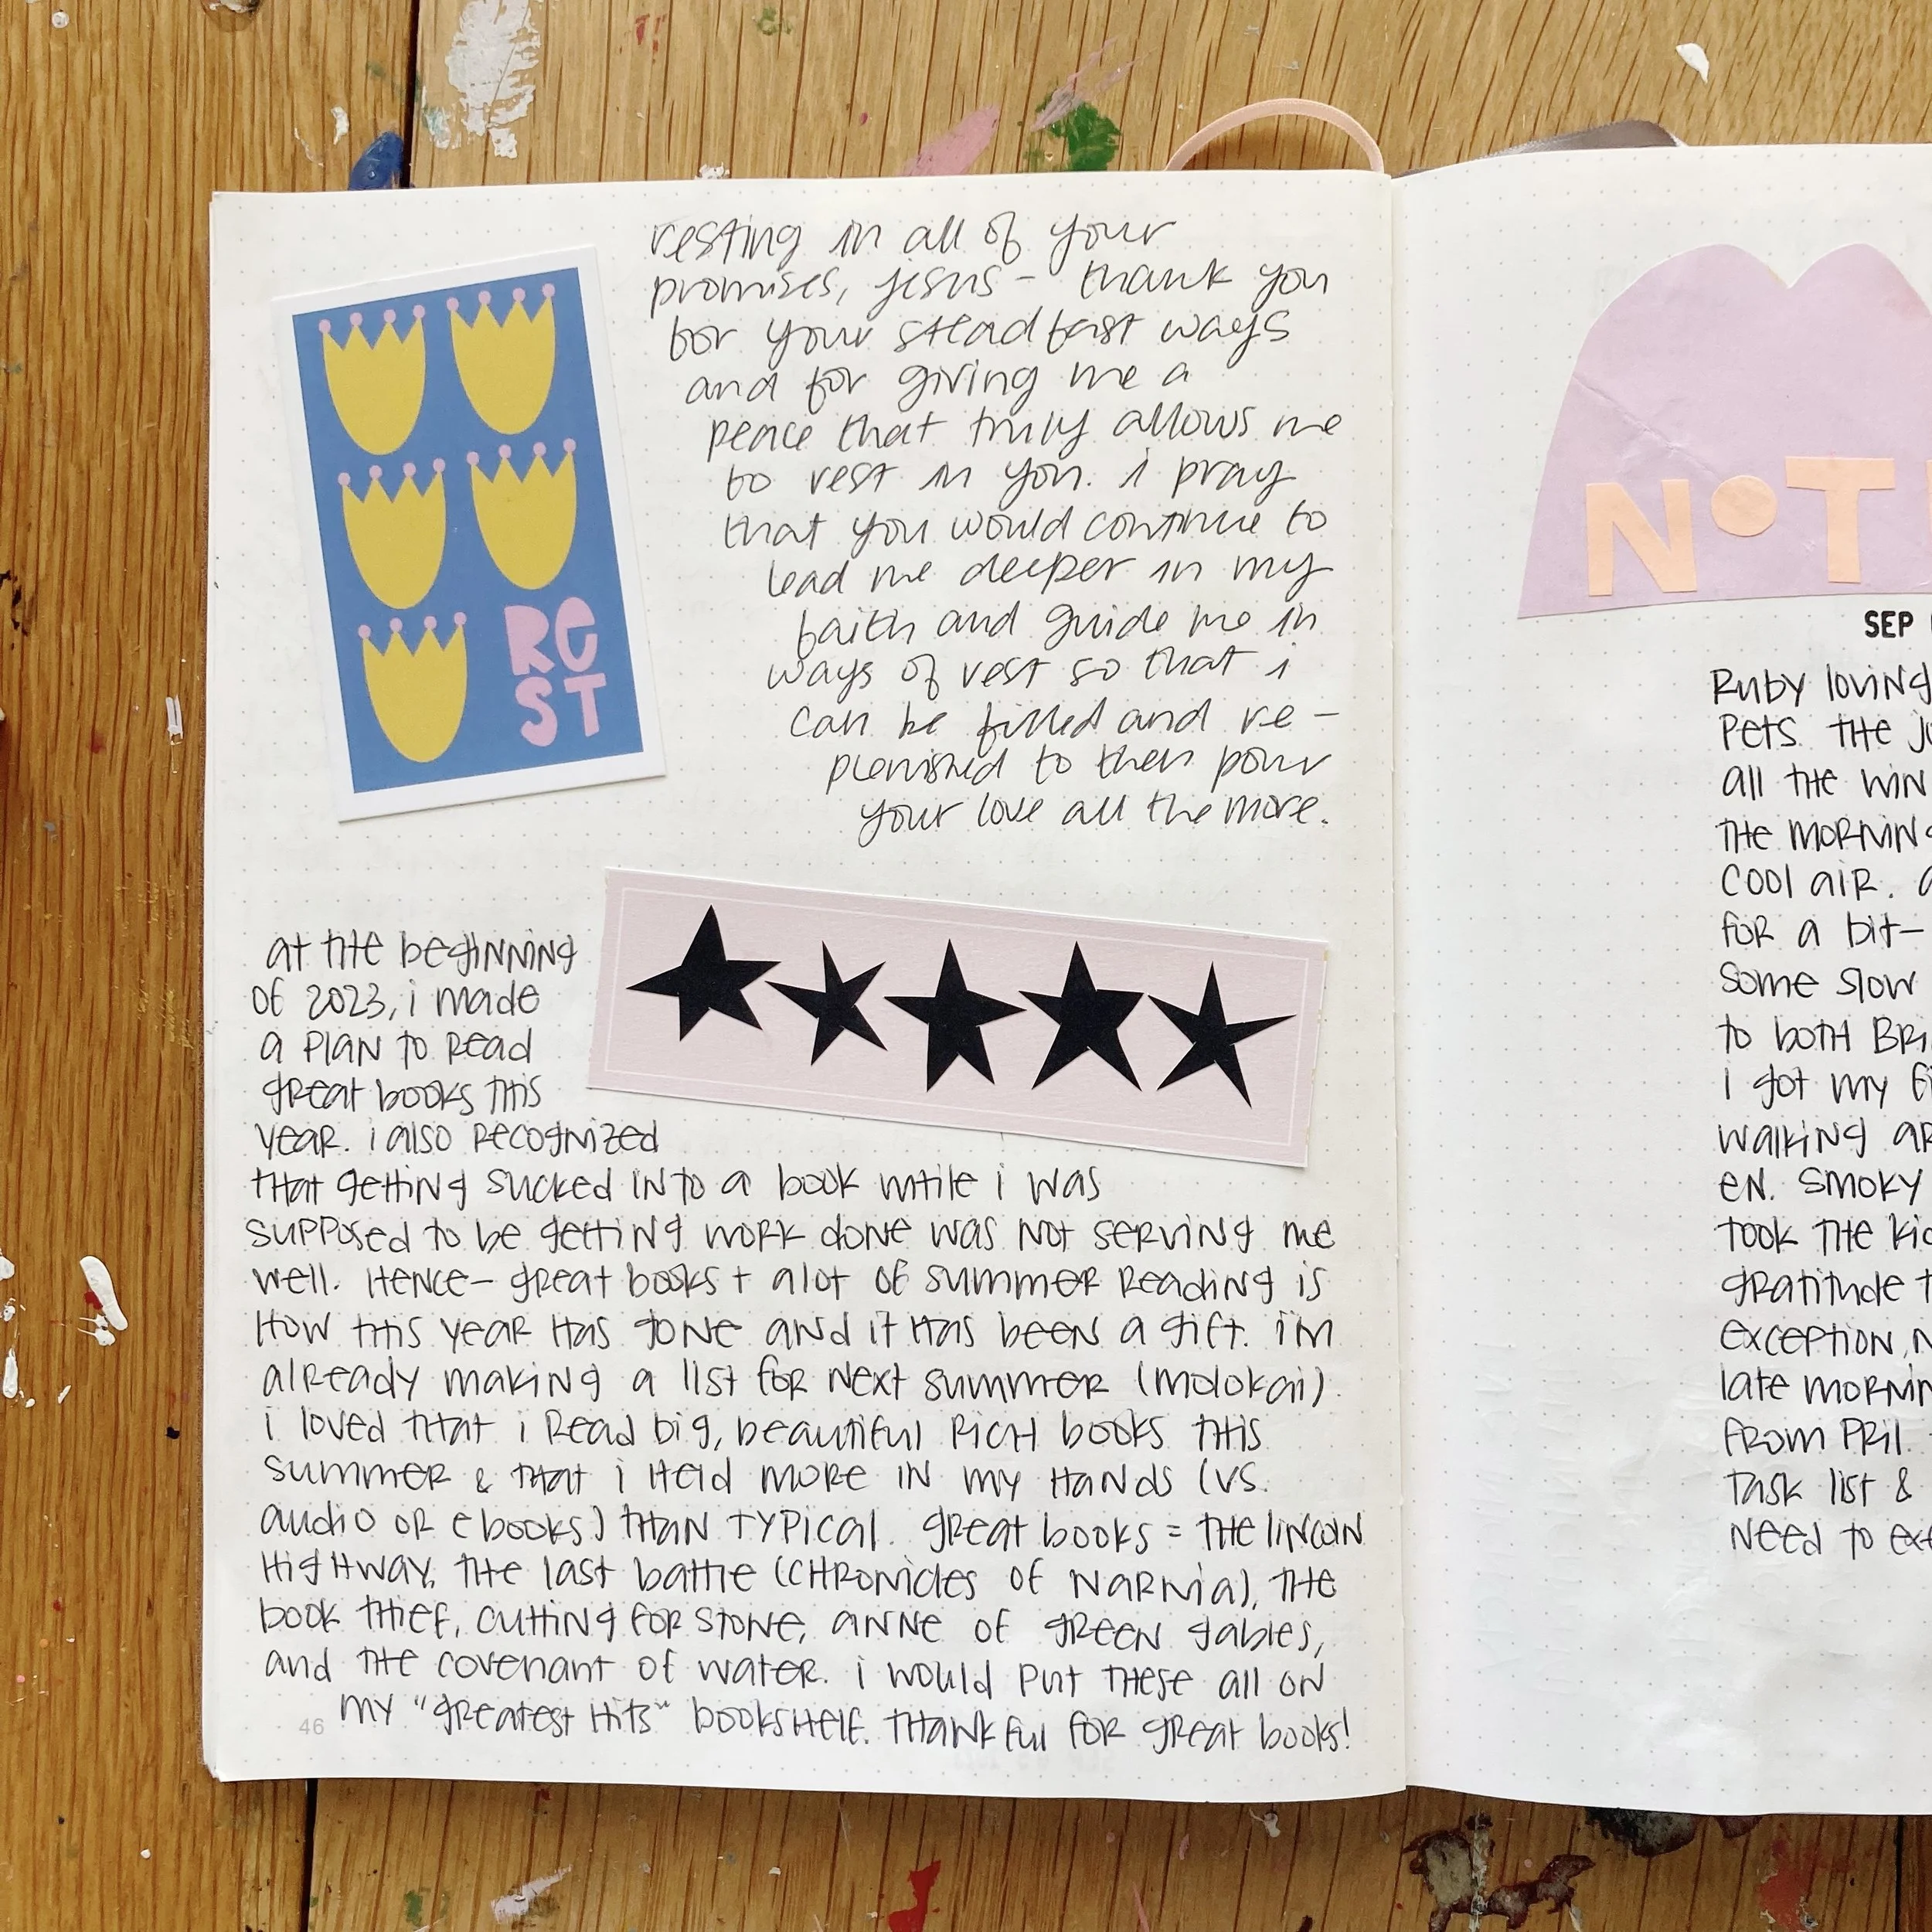 resting in all of your
promises, jesus - thank you
for your steadfast ways
and for giving me a
peace that truly allows me
to rest in you. i pray
that you would continue to
lead me deeper in my
faith and guide me in
ways of rest so that i
can be filled and re-
plenished to then pour
your love all the more.
RE
ST
at the beginning
of 2023, i made
a plan to read
great books this
year. i also recognized
that getting sucked into a book while i was
supposed to be getting work done was not serving me
well. Hence- great books + alot of summer reading is
how this year has gone and it has been a gift. i'm
already making a list for next summer (molokai).
i loved that i read big, beautiful rich books this
summer & that i held more in my hands (vs.
audio or ebooks) than typical. great books = the lincoln
highway, the last battle (chronicles of narnia), the
book thief, cutting for stone, anne of green gables,
and the covenant of water. i would put these all on
my "greatest hits" bookshelf. thankful for great books!
46
NOT
SEP
Ruby loving
pets. the
all the win
the morning
cool air.
for a bit-
some slow
to both Bri
i got my
walking ar
en. smoky
took the kid
gratitude t
exception, n
late mornin
from Pril.
task list &
need to ex